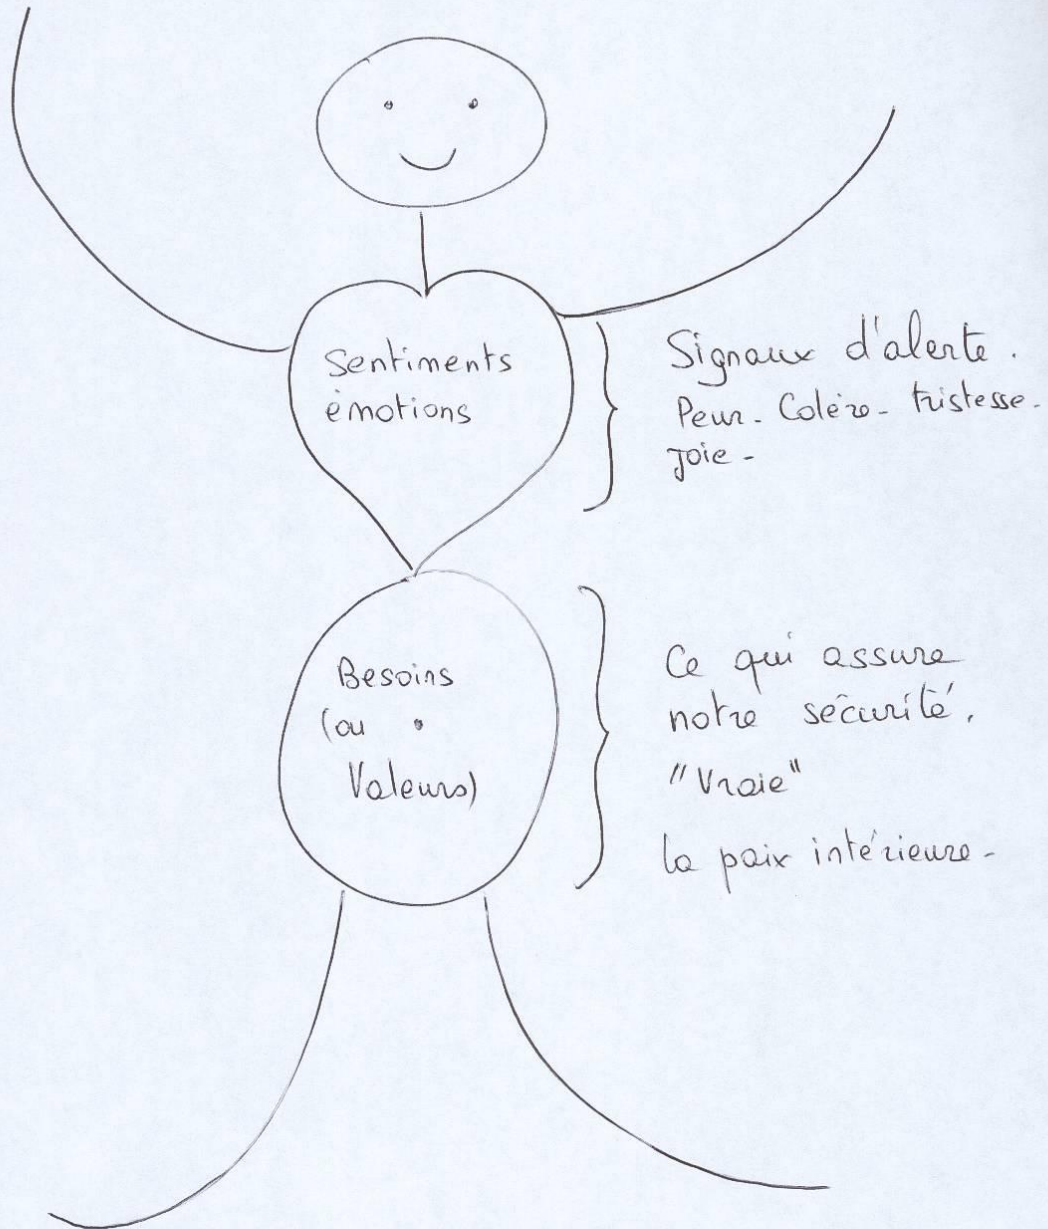 Sentiments
émotions
Signaux d'alerte.
Peur - Colère - tristesse -
Joie -
Besoins
(ou
Valeurs)
Ce qui assure
notre sécurité.
"Vraie"
la paix intérieure -